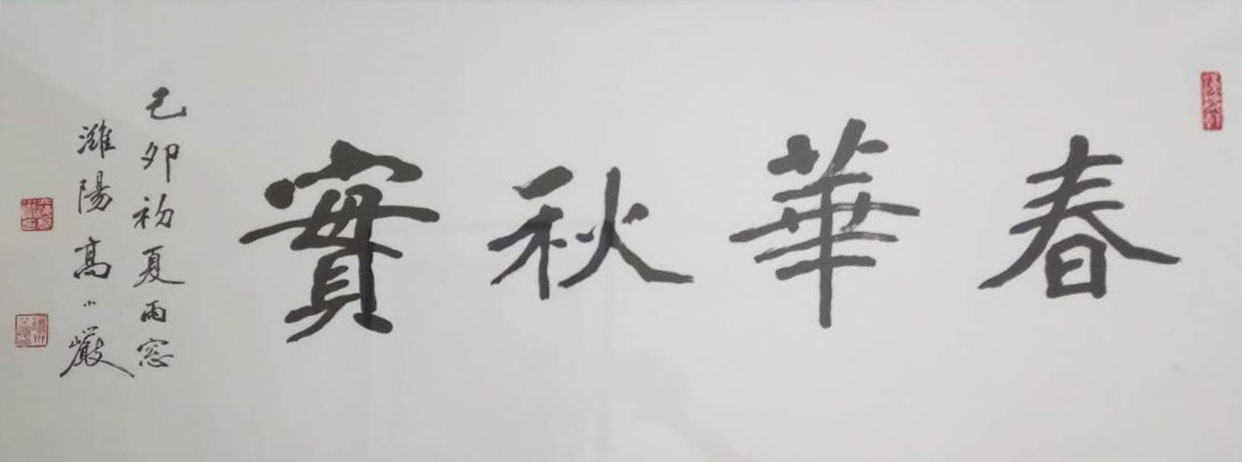 春華秋實
己卯初夏雨窓
濰陽高小巖